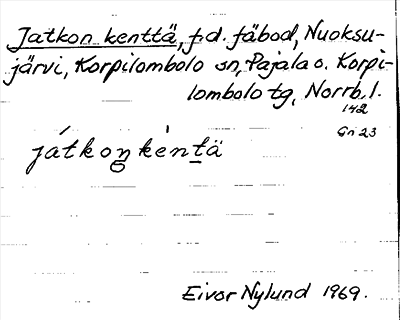 Jatkon kenttä, f.d. fäbod, Nuoksu-
järvi, Korpilombolo sn, Pajala o. Korpi-
lombolo tg, Norrb. l.
142
Gri 23
játkoŋkèntä
Eivor Nylund 1969.